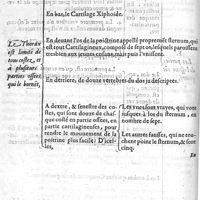 En bas, le Cartilage Xiphoide.
Le Thorax
est formé de
tous costez, &
à plusieurs
parties osseuses
qui le bornent,
En devant l'os de la poictrine appellé proprement sternum, qui
est tout Cartilagineux, composé de sept os, lesquels pousse
meublen aux jeunes enfans, mais puis l'unissent.
En derriere, de douze vertebres du dos ja descriptes.
A dextre, & senestre des costes,
qui sont douze de chaque
costé en partie osseuses, en
partie cartilagineuses, pour
rendre le mouvement de la
poictrine plus facile: D'icelles,
Les unes sont vrayes, qui vont
jusques à l'os du sternum, en
nombre de sept.
Les autres fausses, qui ne touchent
point le sternum, & sont
cinq.
En